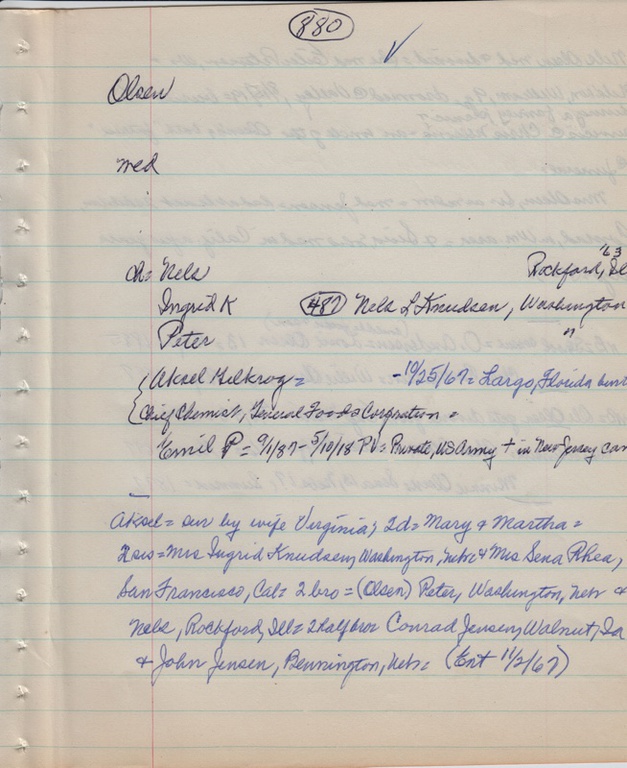 880
Olsen
med
'63
ch = Nels Rockford, Il
Ingrid K 487 Nels L Knudsen, Washington
Peter "
{ Aksel Helkrog = - 10/25/67 = Largo, Florida
{ Chief Chemist, General Foods Corporation =
Emil P = 9/1/87 - 5/10/18 PV = Private, US Army + in New Jersey cam
Aksel = sur by wife Virginia; 2d = Mary & Martha =
2 sis = Mrs Ingrid Knudsen, Washington, Nebr & Mrs Sena Rhea,
San Francisco, Cal = 2 bro = (Olsen) Peter, Washington, Nebr &
Nels, Rockford, Ill = 2 half bro Conrad Jensen, Walnut, Ia
& John Jensen, Bennington, Nebr = (Ent 11/2/67)